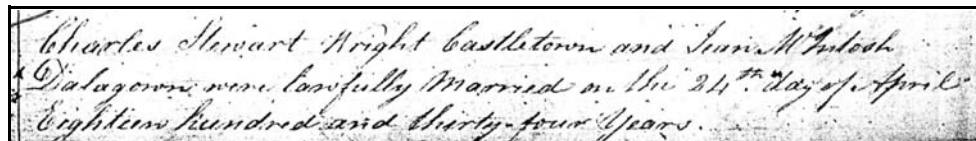 Charles Stewart Wright Castletown and Jean McIntosh
Dalagown were lawfully Married on the 24th day of April
Eighteen hundred and thirty-four Years.